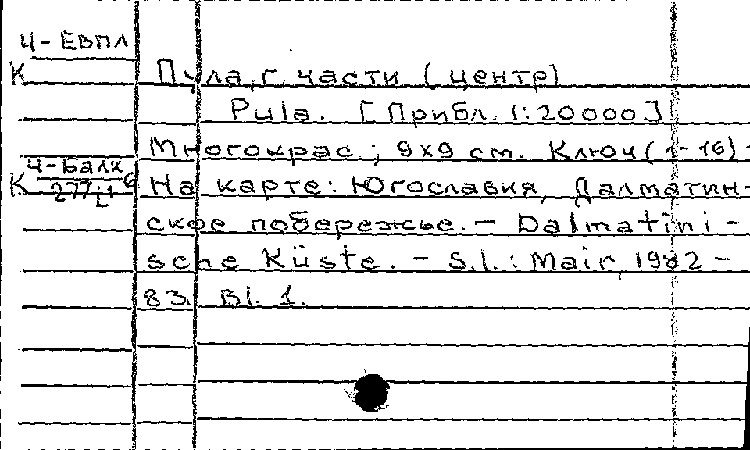 Ч-ЕВПЛ
К
Пула, г. части (центр)
Pula. [Прибл. 1:20000]
Многокрас.; 9х9 см. Ключ (1-16)
Ч-Балк
К
На карте: Югославия, Далматин-
ское побережье. - Dalmatini-
sche Küste. - S.l.: Mair, 1982-
83. Bl. 1.